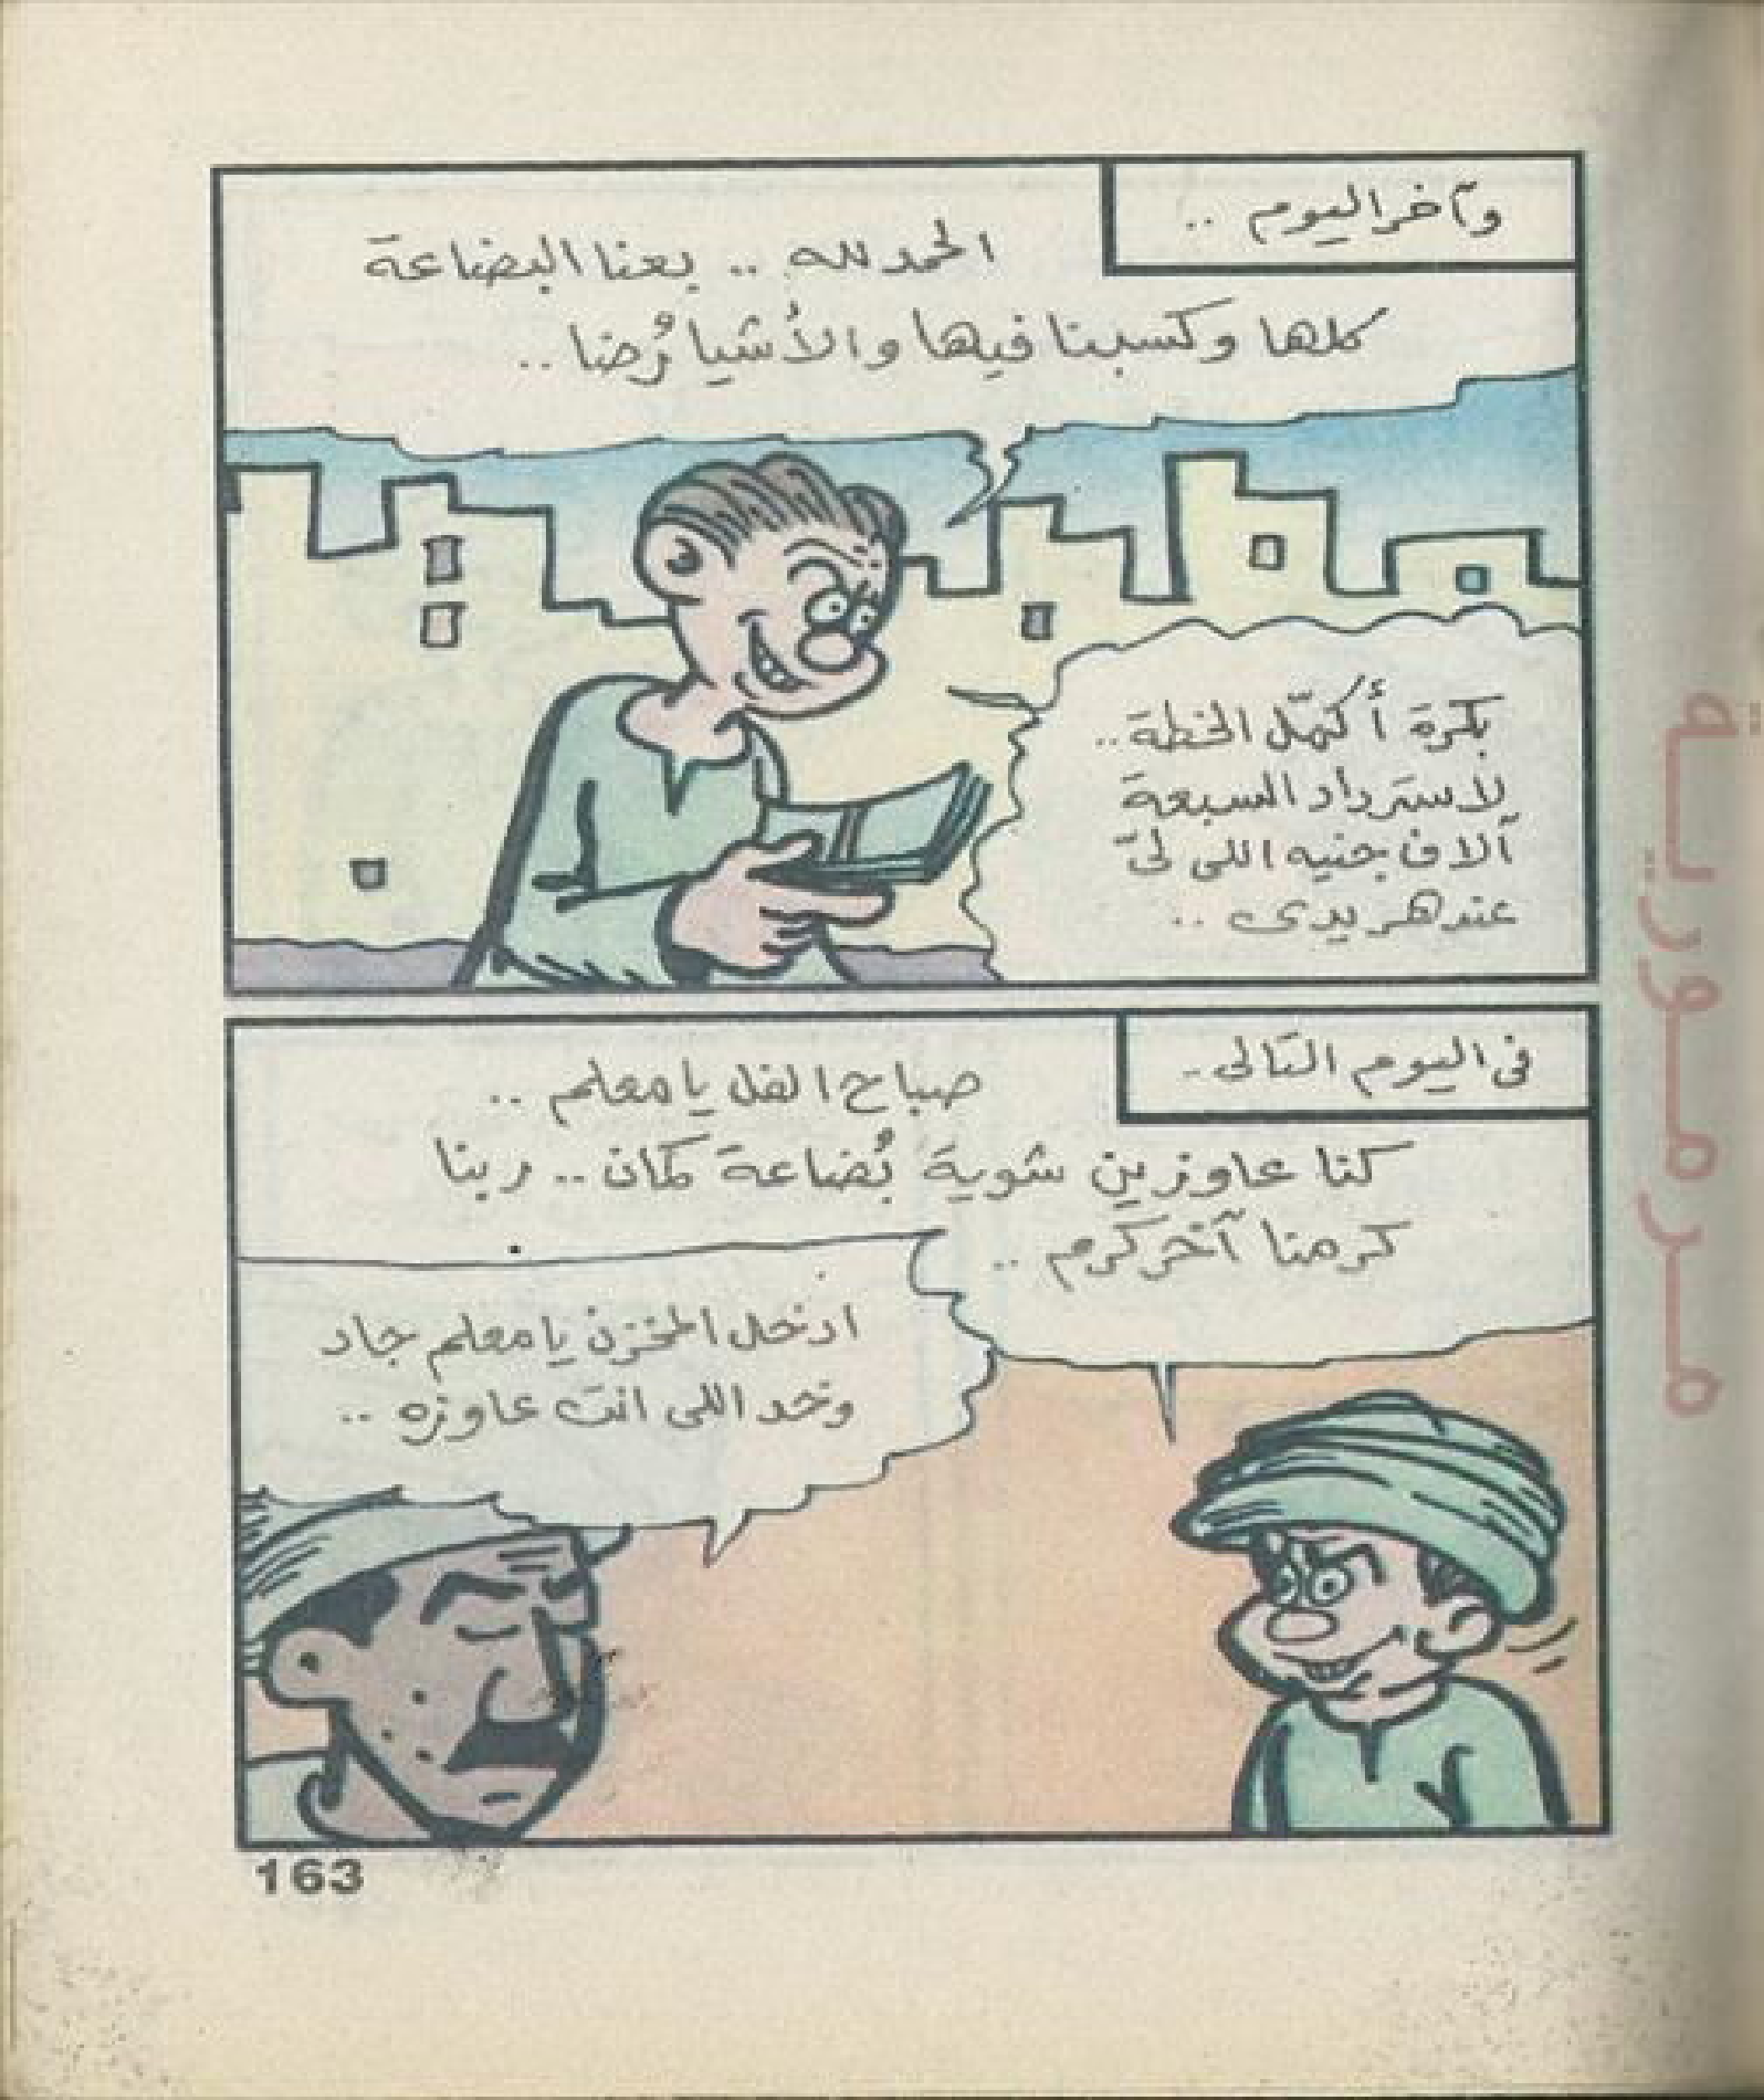 وآخر اليوم ..
الحمد لله .. بعنا البضاعة
كلها وكسبنا فيها والأشيا رُضا ..
بكرة أكمّل الخطة ..
لاسترداد السبعة
آلاف جنيه اللى لىّ
عند هريدى ..
فى اليوم التالى ..
صباح الفل يا معلم ..
كنا عاوزين شوية بُضاعة كمان .. ربنا
كرمنا آخر كرم ..
ادخل المخزن يا معلم جاد
وخد اللى انت عاوزه ..
163